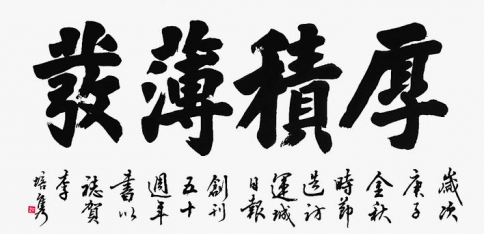 厚積薄發
歲次
庚子
金秋
時節
造訪
運城
日報
創刊
五十
週年
書以
誌賀
李
培隽